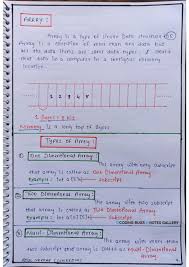 ARRAY :
Array is a type of linear Data structure
Array is a collection of more than one data but
all the data items are same data types. It should
that data in a computer in a contiguous memory
location.
1 2 3 4 5
1 Byte = 8 Bit
Memory is a long tap of Bytes
Types of Array :
1 One Dimensional Array :
The array with only one
subscript that is called as One Dimensional Array.
Example : int a[5] Subscript
2 Two Dimensional Array :
The array with two subscript
that is called as Two Dimensional Array.
Example : int a[5][5] Subscript.
© CODING BUGS NOTES GALLERY
3 Multi-Dimensional Array :
The array with more than
two subscript that array is called as Multi-Dimensional
Array.